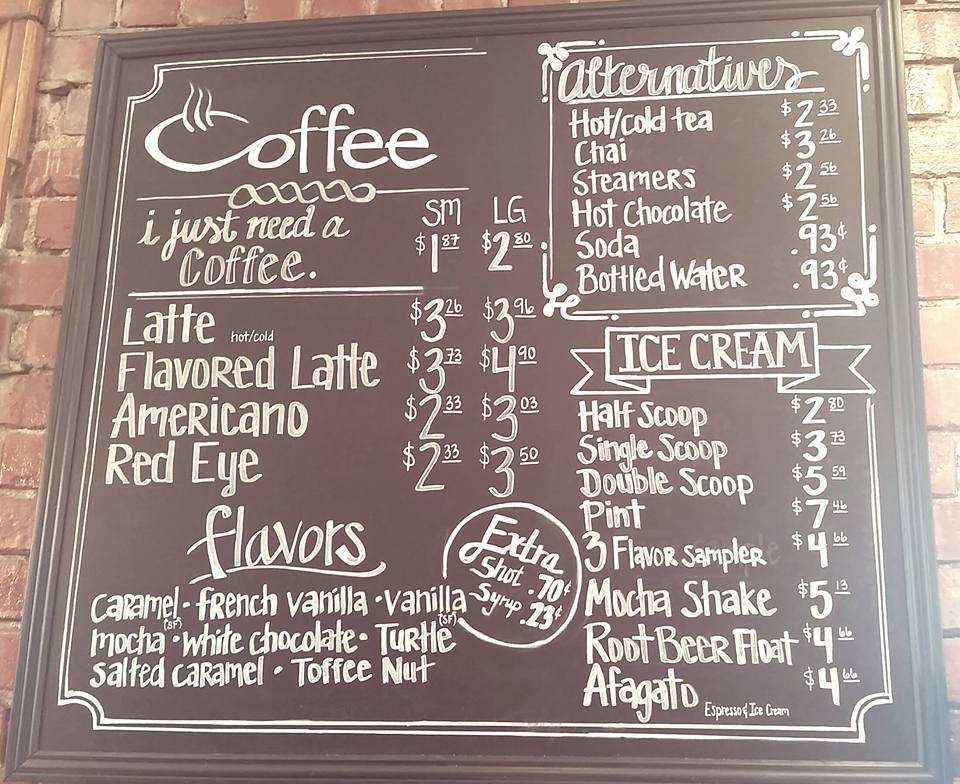 Coffee
SM LG
i just need a
Coffee. $1 87 $2 80
Latte hot/cold $3 26 $3 96
Flavored Latte $3 73 $4 90
Americano $2 33 $3 03
Red Eye $2 33 $3 50
flavors
caramel (SF) - french vanilla · vanilla (SF)
mocha · white chocolate · Turtle
salted caramel · Toffee Nut
Extra
Shot .70¢
Syrup .23¢
alternatives
Hot/cold tea $2 33
Chai $3 26
Steamers $2 56
Hot Chocolate $2 56
Soda .93¢
Bottled Water .93¢
ICE CREAM
Half Scoop $2 80
Single Scoop $3 73
Double Scoop $5 59
Pint $7 46
3 Flavor Sampler $4 66
Mocha Shake $5 13
Root Beer Float $4 66
Afagato $4 66
Espresso & Ice Cream